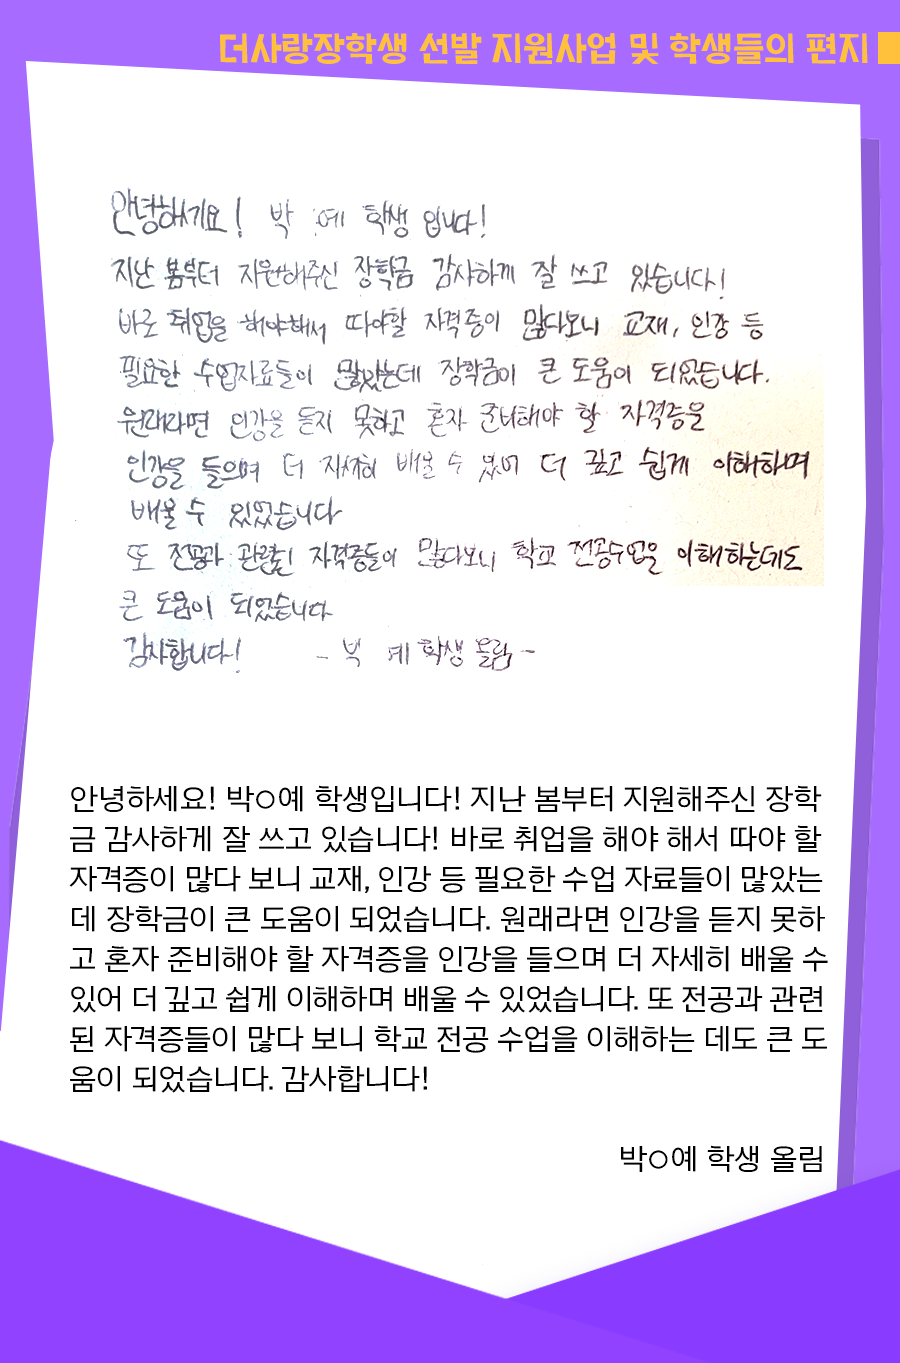 더사랑장학생 선발 지원사업 및 학생들의 편지
안녕하세요! 박 예 학생 입니다!
지난 봄부터 지원해주신 장학금 감사하게 잘 쓰고 있습니다!
바로 취업을 해야해서 따야할 자격증이 많다보니 교재, 인강 등
필요한 수업자료들이 많았는데 장학금이 큰 도움이 되었습니다.
원래라면 인강을 듣지 못하고 혼자 준비해야 할 자격증을
인강을 들으며 더 자세히 배울 수 있어 더 깊고 쉽게 이해하며
배울 수 있었습니다
또 전공과 관련된 자격증들이 많다보니 학교 전공수업을 이해하는데도
큰 도움이 되었습니다
감사합니다! - 박 예 학생 올림 -
안녕하세요! 박○예 학생입니다! 지난 봄부터 지원해주신 장학
금 감사하게 잘 쓰고 있습니다! 바로 취업을 해야 해서 따야 할
자격증이 많다 보니 교재, 인강 등 필요한 수업 자료들이 많았는
데 장학금이 큰 도움이 되었습니다. 원래라면 인강을 듣지 못하
고 혼자 준비해야 할 자격증을 인강을 들으며 더 자세히 배울 수
있어 더 깊고 쉽게 이해하며 배울 수 있었습니다. 또 전공과 관련
된 자격증들이 많다 보니 학교 전공 수업을 이해하는 데도 큰 도
움이 되었습니다. 감사합니다!
박○예 학생 올림